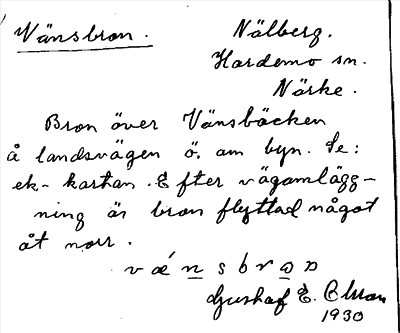 Vänsbron. Nälberg.
Hardemo sn.
Närke.
Bron över Vänsbäcken
å landsvägen ö. om byn. Se:
ek-kartan. Efter vägomlägg-
ning är bron flyttad något
åt norr.
E.
1930